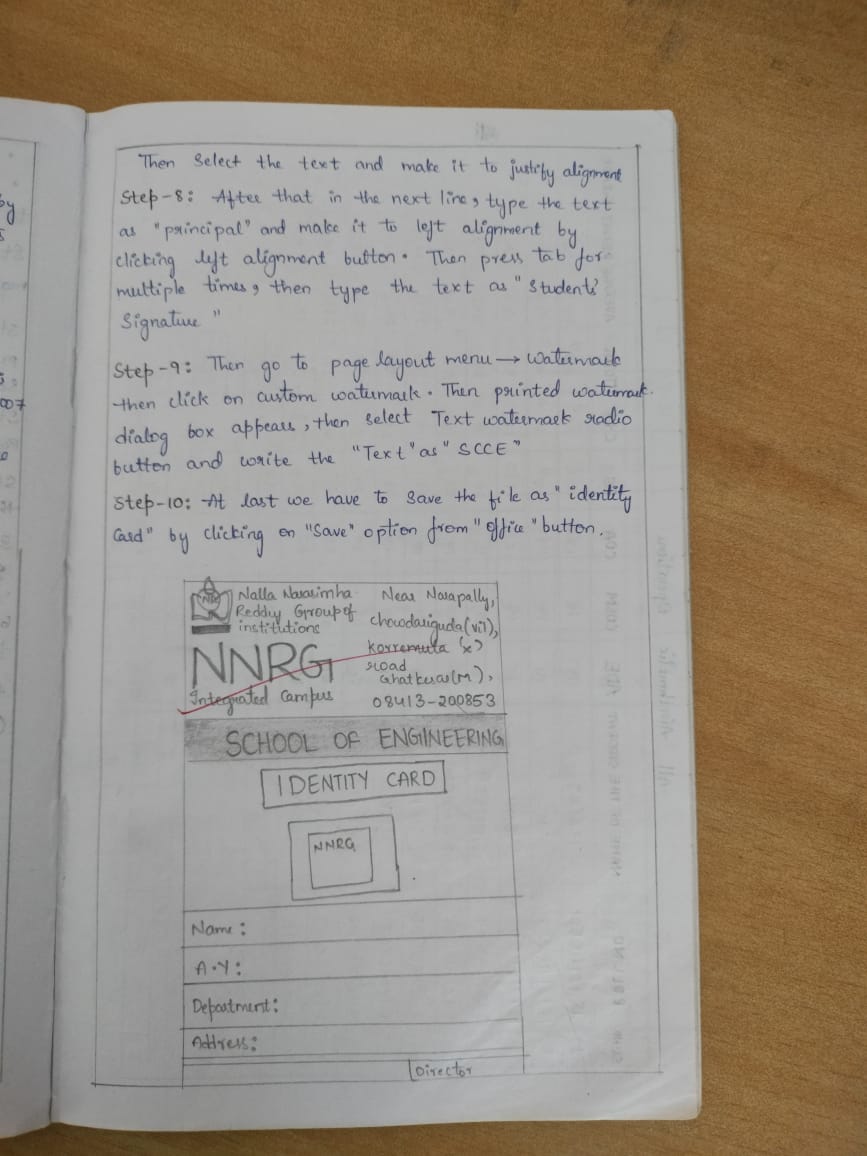 Then Select the text and make it to justify alignment
Step-8: After that in the next line, type the text
as "principal" and make it to left alignment by
clicking left alignment button. Then press tab for
multiple times, then type the text as "Students'
Signature"
Step-9: Then go to page layout menu → watermark
then click on custom watermark. Then printed watermark
dialog box appears, then select Text watermark radio
button and write the "Text" as "SCCE"
Step-10: At last we have to save the file as "identity
Card" by clicking on "Save" option from "office" button.
Nalla Narasimha
Reddy Group of
institutions
NNRG
Integrated Campus
Near Narapally,
chowdariguda(vil),
korremula (x)
road
Ghatkesar(M),
08413-200853
SCHOOL OF ENGINEERING
IDENTITY CARD
NNRG
Name:
A.Y:
Department:
Address:
Director
007